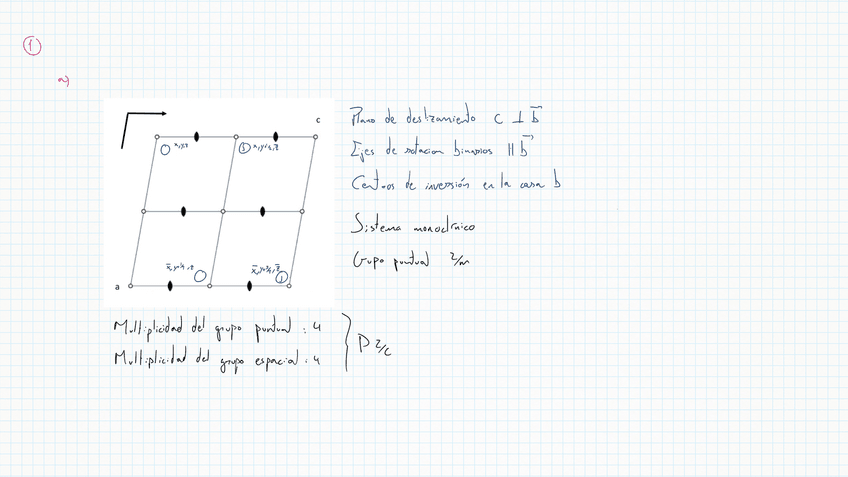 1
a)
c
x,y,z
a
Plano de deslizamiento c ⊥ b
Ejes de rotacion binarios || b
Centros de inversión en la cara b
Sistema monoclínico
Gupo puntual 2/m
Multiplicidad del grupo puntual : 4
Multiplicidad del grupo espacial : 4
P 2/c